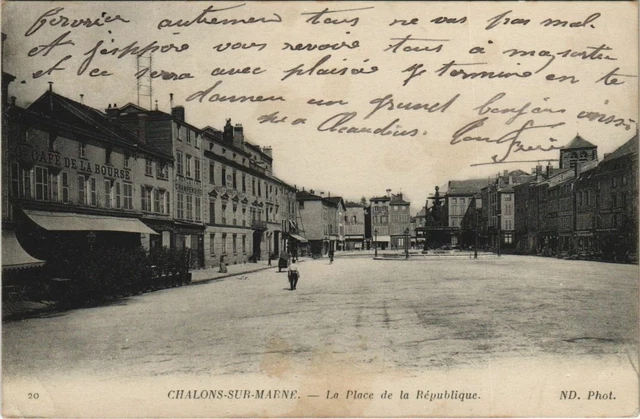 fevrier autrement tous ne vas pas mal.
et j'espère vous revoire tous à ma sortie
et ce sera avec plaisire je termine en te
donnent un grand bonjour ainsi
que a Claudius. ton frère
CAFÉ DE LA BOURSE
20 CHALONS-SUR-MARNE. — La Place de la République. ND. Phot.